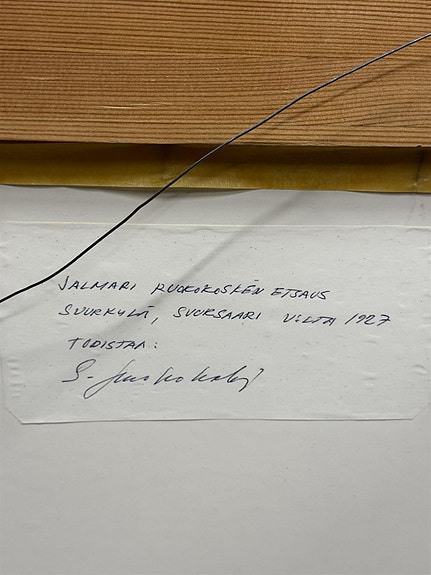 JALMARI RUOKOKOSKEN ETSAUS
SUURKYLÄ, SUURSAARI V:LTA 1927
TODISTAA:
S.